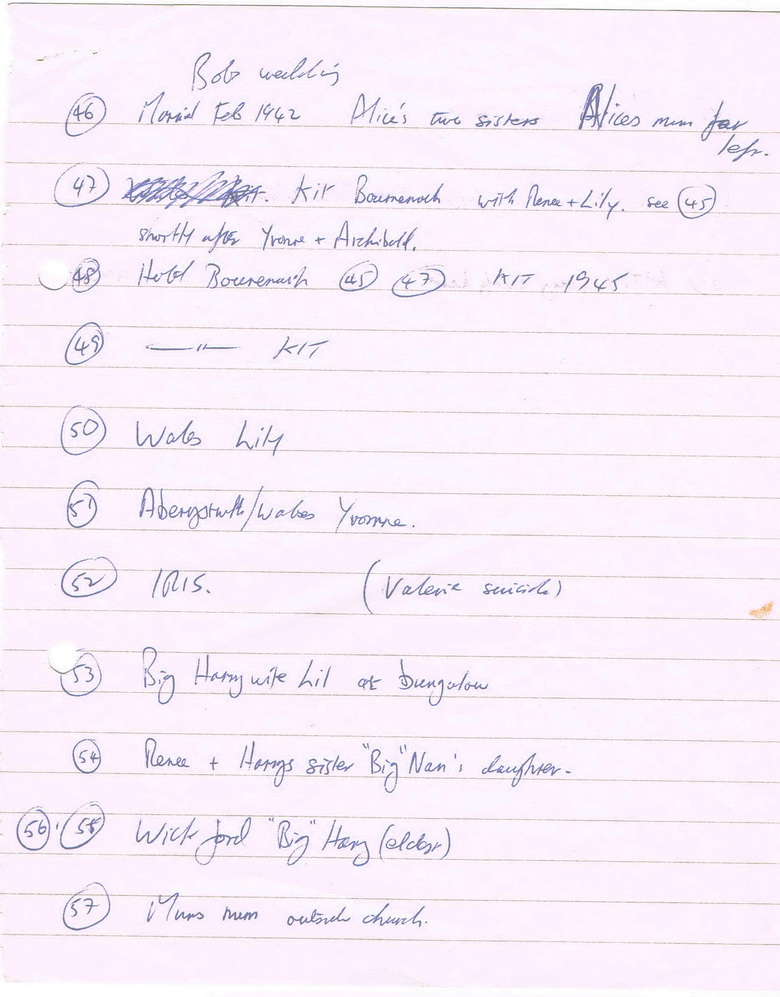 Bobs wedding
(46) Married Feb 1942 Alice's two sisters Alices mum far
left.
(47) Kit Bournemouth with Renee + Lily. see (45)
shortly after Yvonne + Archibald.
(48) Hotel Bournemouth (45) (47) KIT 1945
(49) —"— KIT
(50) Wales Lily
(51) Aberystwth/Wales Yvonne.
(52) IRIS. (Valerie suicide)
(53) Big Harry wife Lil at bungalow
(54) Renee + Harrys sister "Big" Nan's daughter.
(56) (55) Wickford "Big" Harry (elder)
(57) Mums mum outside church.